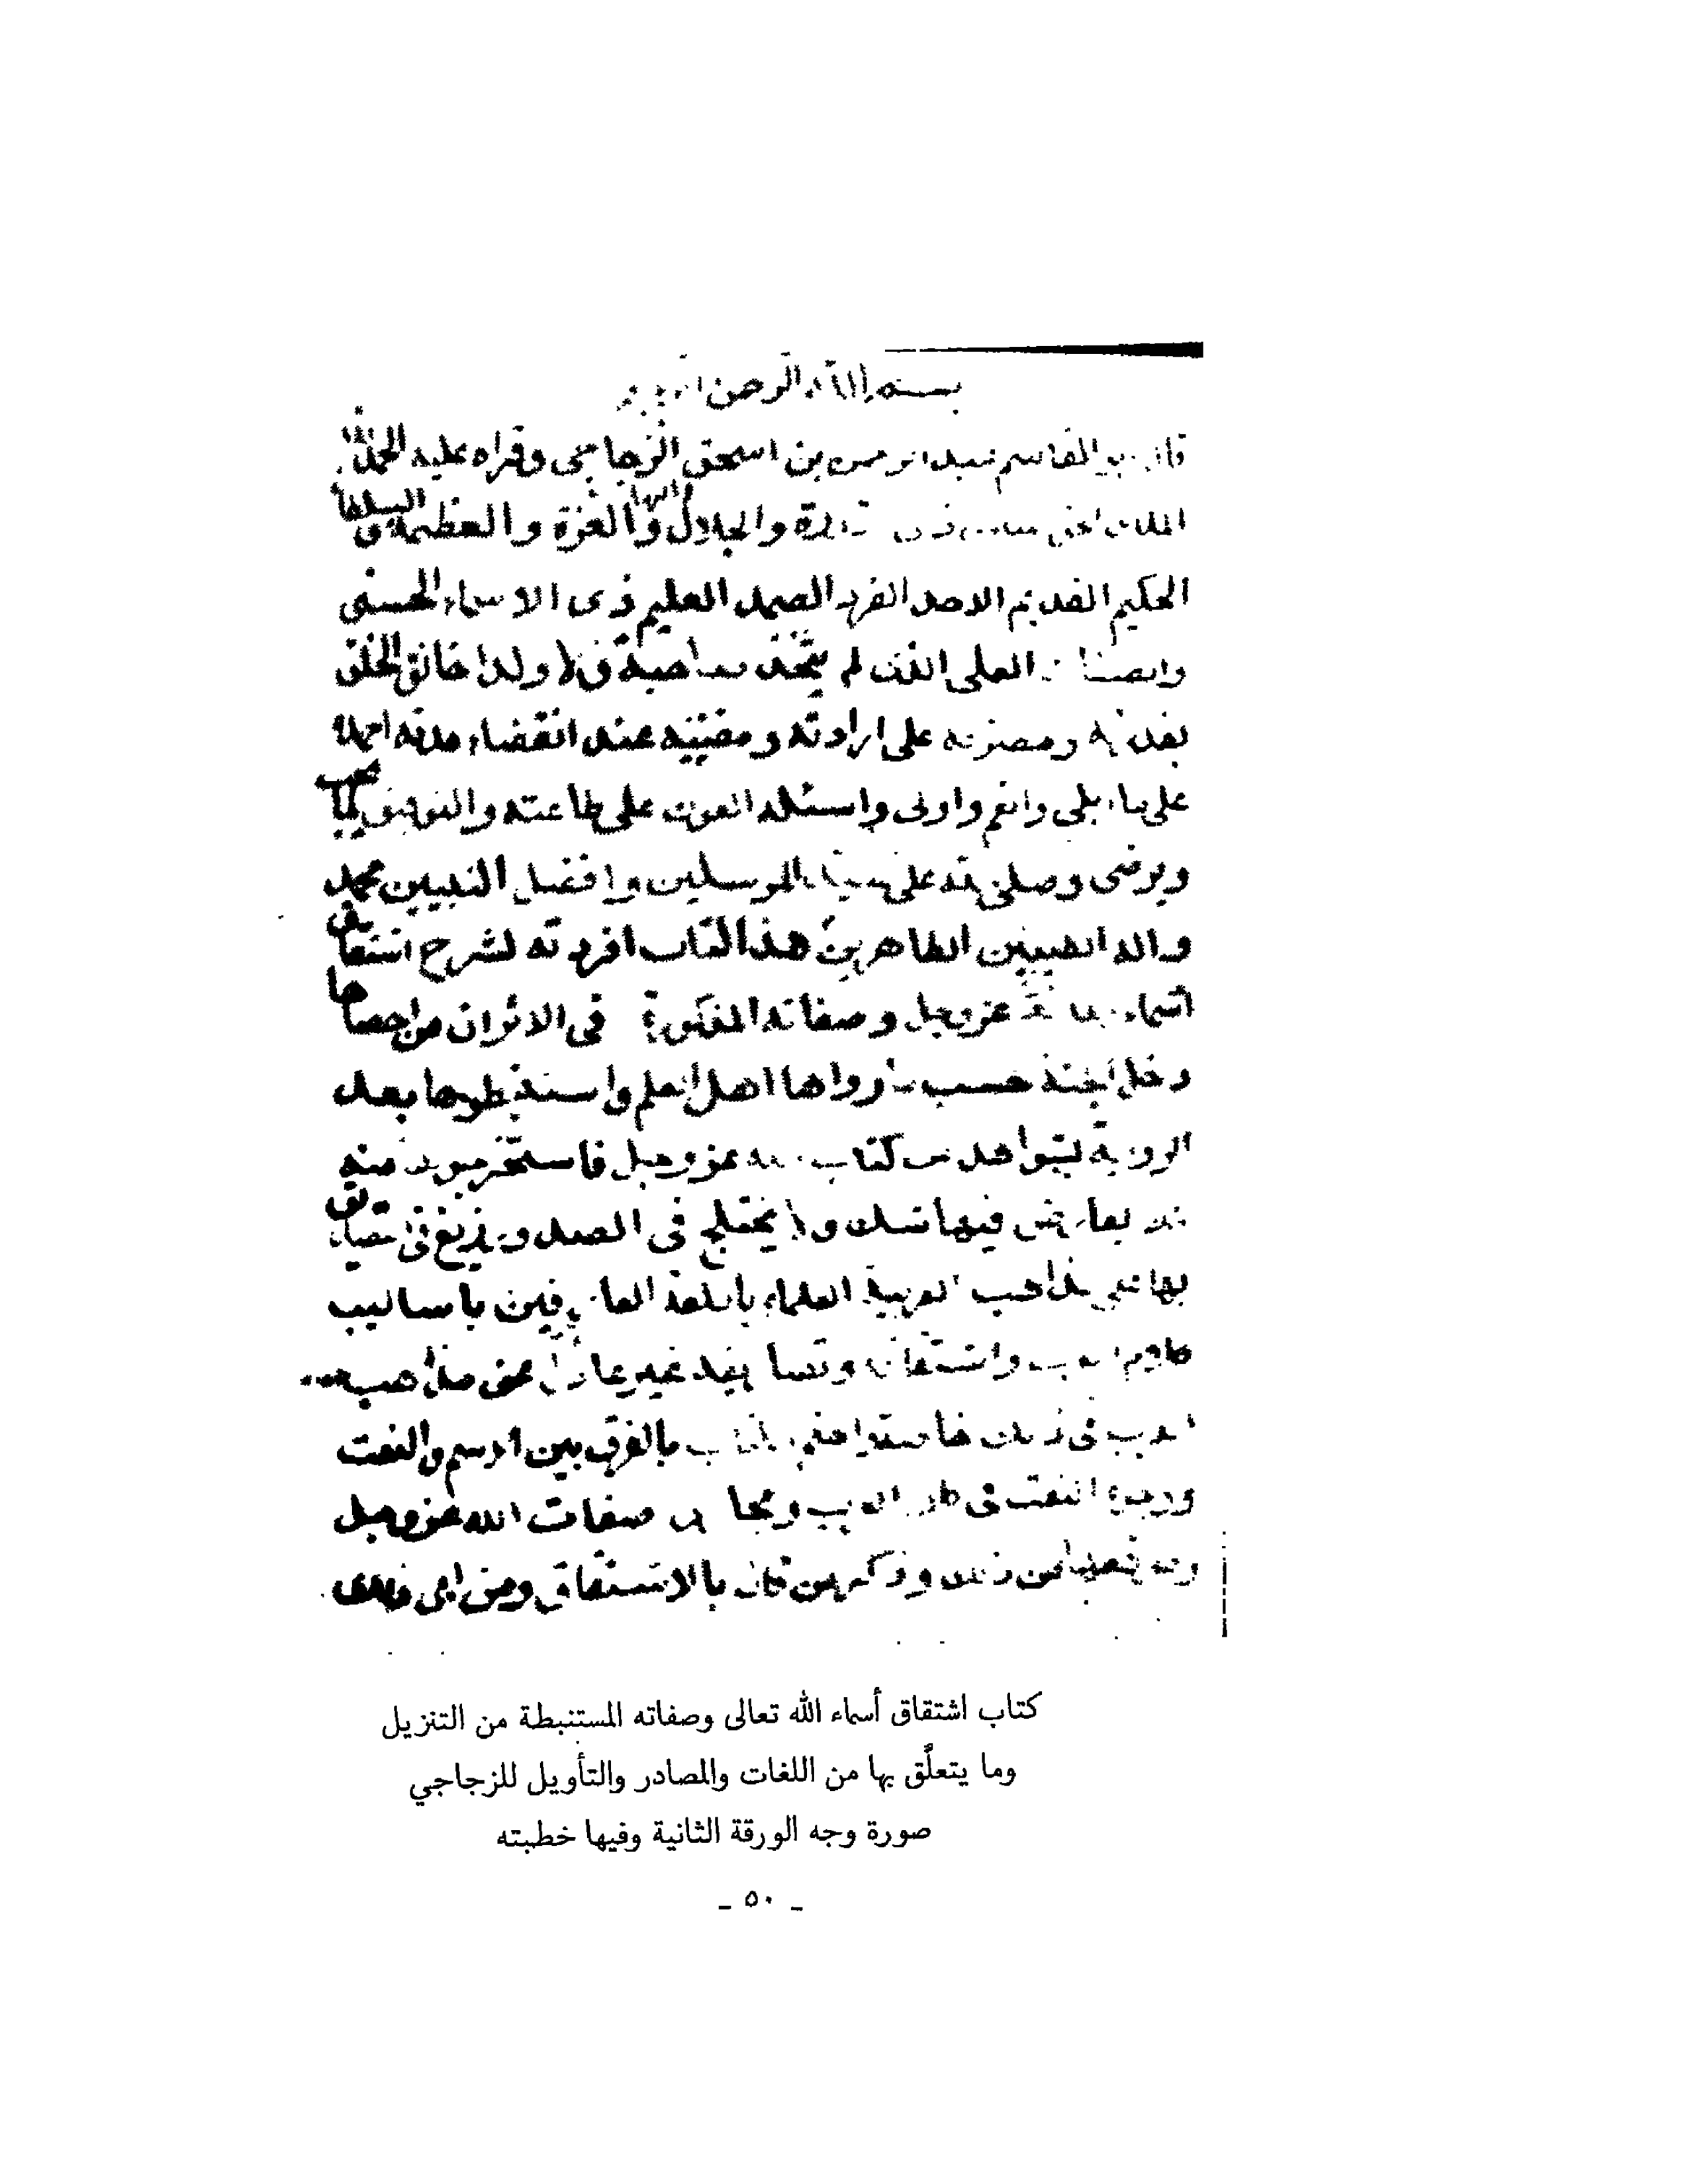 بسم الله الرحمن
القاسم بن اسحق الزجاجي وقراه عليه الحمد لله
والجلال والبها والعزة والعظمة والسلطا ن
الحكيم القديم الاحد الفرد الصمد العليم ذي الاسماء الحسنى
العلى الذى لم يتخذ صاحبة ولا ولدا خالق الخلق
على ارادته ومفنيه عند انقضاء مدته احمده
على ما ابلى وانعم واولى واسئله العون على طاعته والتوفيق لما يحب
ويرضى وصلى الله على سيد المرسلين وافضل النبيين محمد
واله الطيبين الطاهرين هذا الكتاب افردته لشرح اشتقاق
اسماء الله عز وجل وصفاته المذكورة فى الاثر ان من احصاها
دخل الجنة حسب ما رواها اهل العلم واستنبطوها بعد
الرواية بشواهد من كتاب الله عز وجل فاستخرجوها منه
فيها شك ولا يختلج فى الصدر
بها مذاهب العربية العلماء باللغة العارفين باساليب
كلام العرب واشتقاق وتصا ريفه غير عادل عن مذاهب
العرب فى ذلك بالفرق بين الاسم والنعت
ووجوه النعت فى كلام العرب صفات الله عز وجل
وذكر من قال بالاشتقاق ومن ابى ذلك
كتاب اشتقاق أسماء الله تعالى وصفاته المستنبطة من التنزيل
وما يتعلَّق بها من اللغات والمصادر والتأويل للزجاجي
صورة وجه الورقة الثانية وفيها خطبته
ـ ٥٠ ـ